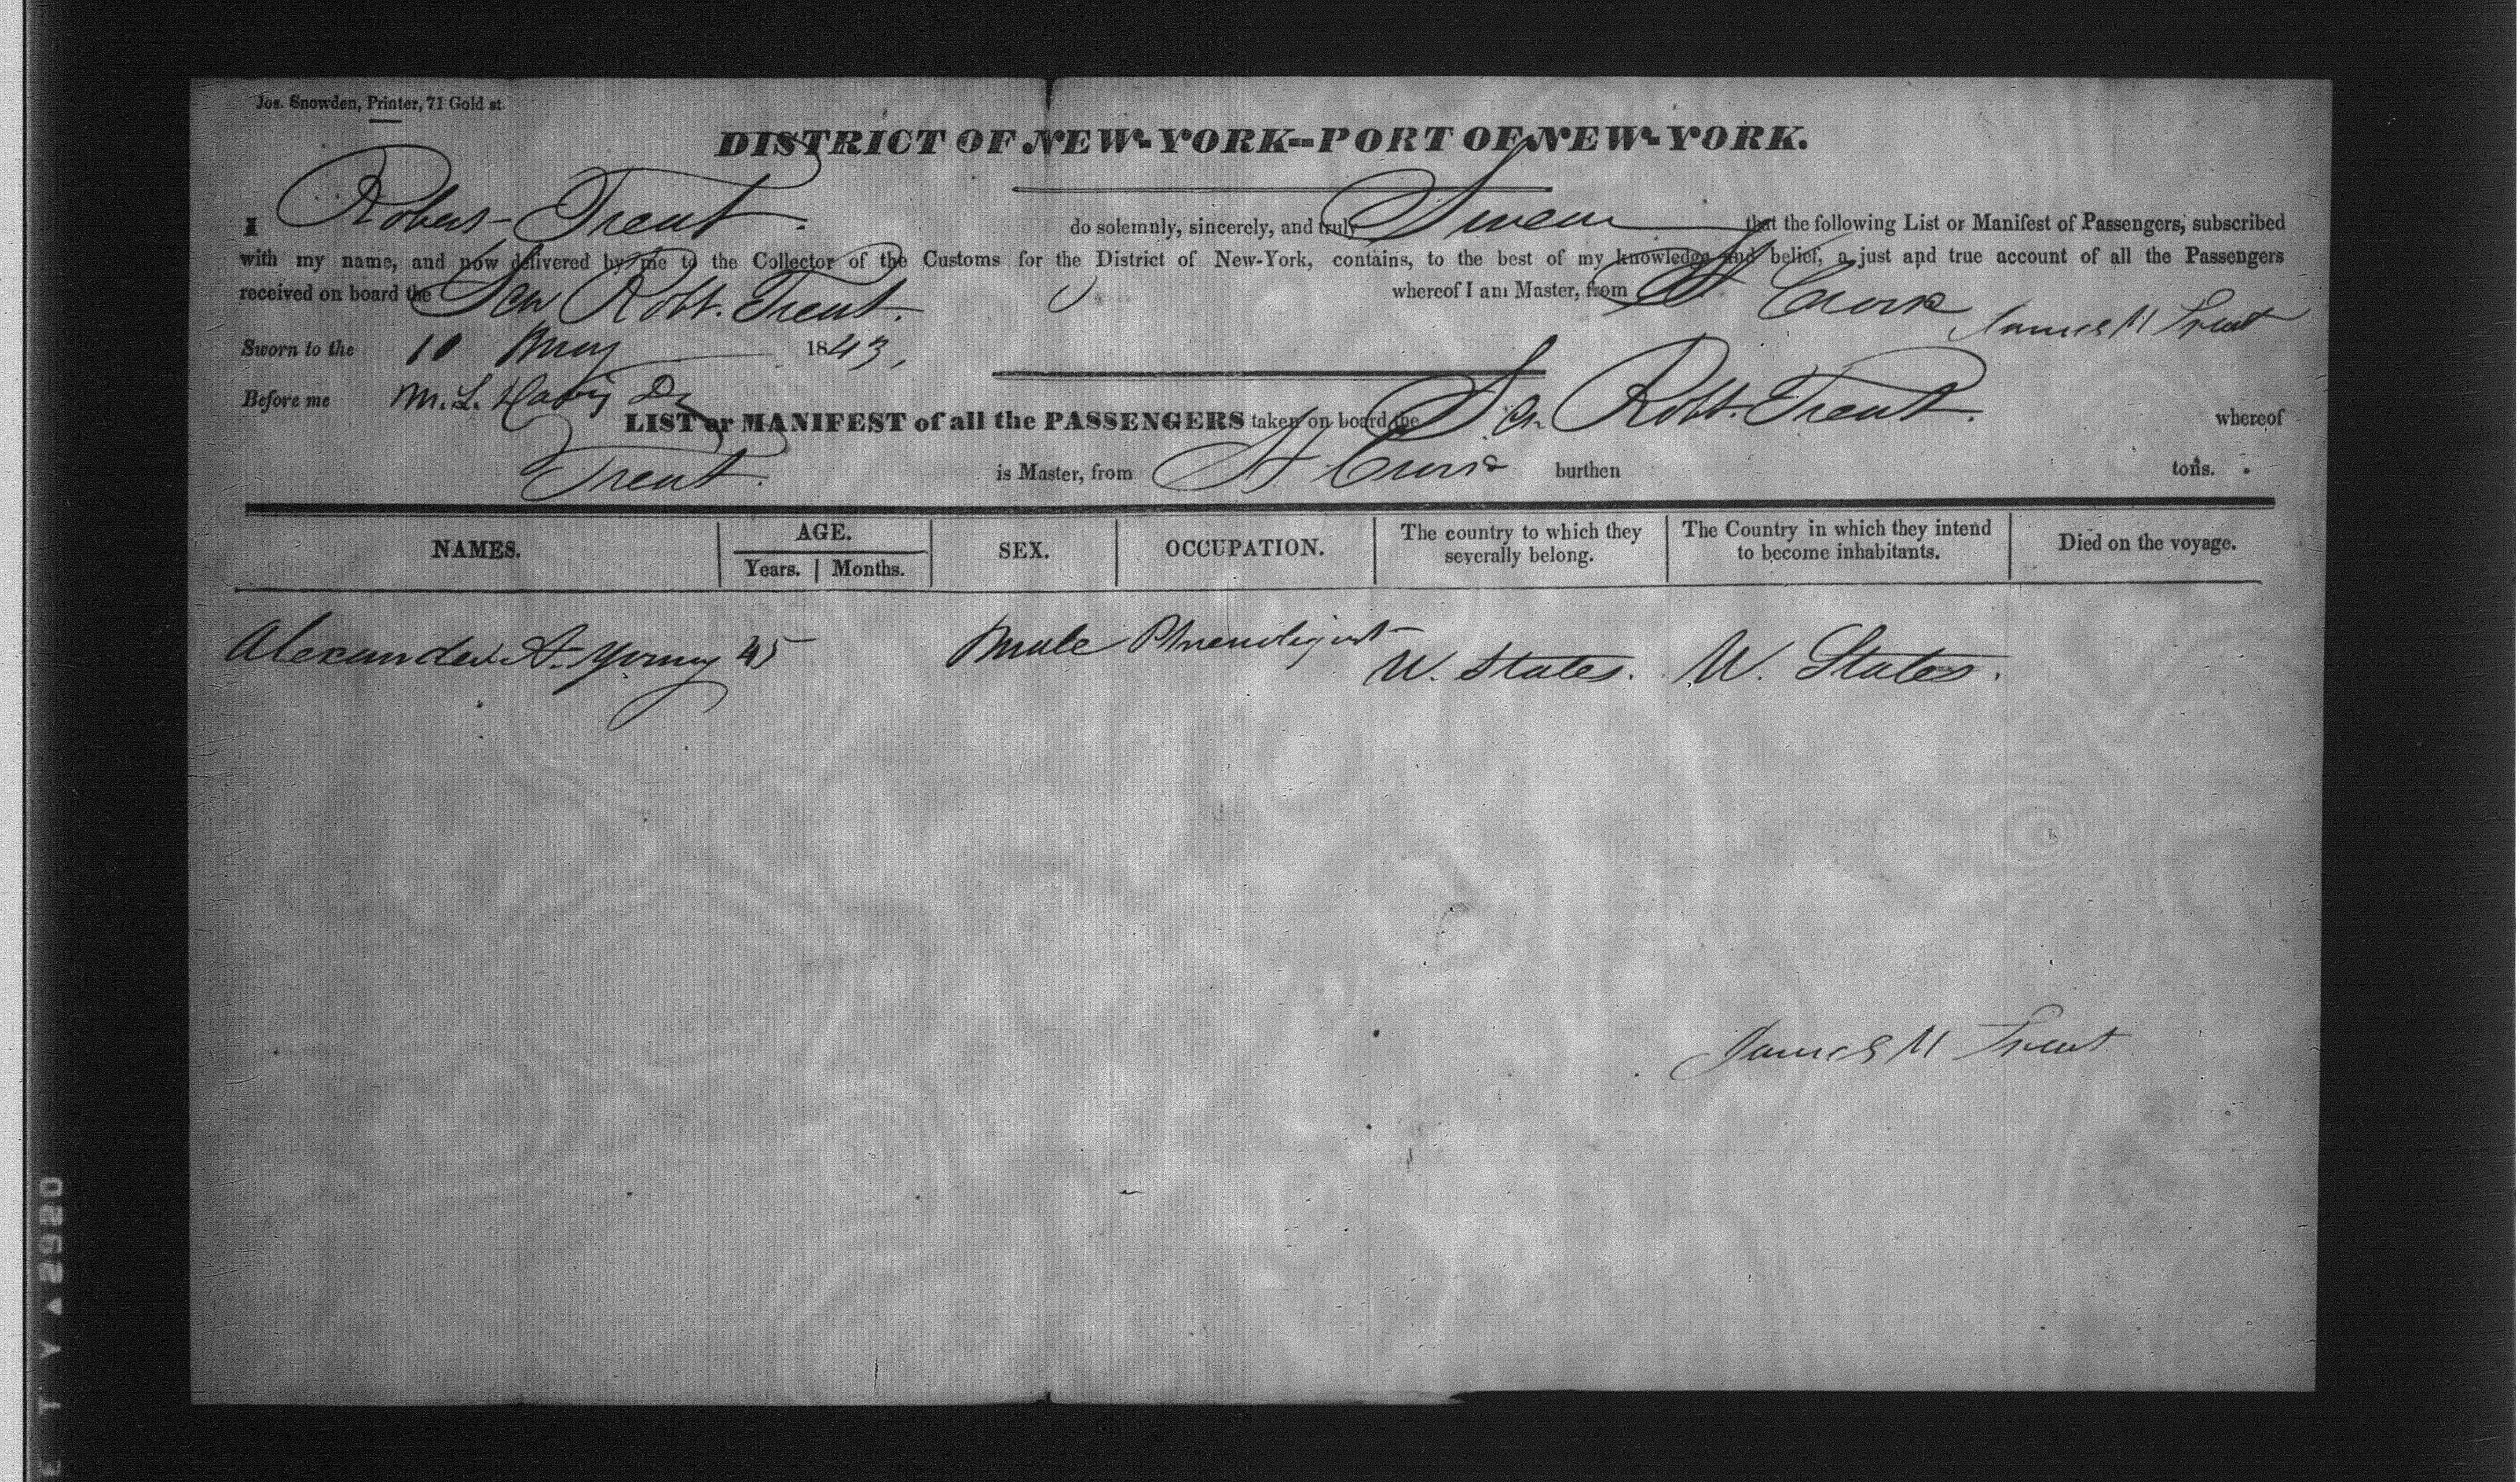 Jos. Snowden, Printer, 71 Gold st.
DISTRICT OF NEW-YORK--PORT OF NEW-YORK.
I Robert Trent. do solemnly, sincerely, and truly Swear that the following List or Manifest of Passengers, subscribed
with my name, and now delivered by me to the Collector of the Customs for the District of New-York, contains, to the best of my knowledge and belief, a just and true account of all the Passengers
received on board the Sch Robt. Trent. whereof I am Master, from St Croix
James M Trent
Sworn to the 10 May 1843,
Before me M. L. Davis
LIST or MANIFEST of all the PASSENGERS taken on board the Sch. Robt. Trent. whereof
Trent. is Master, from St Croix burthen tons.
NAMES. AGE. SEX. OCCUPATION. The country to which they severally belong. The Country in which they intend to become inhabitants. Died on the voyage.
Years. Months.
Alexander A. Young 45 Male Phrenologist U. States. U. States.
James M Trent
E T Y ▲ 2920